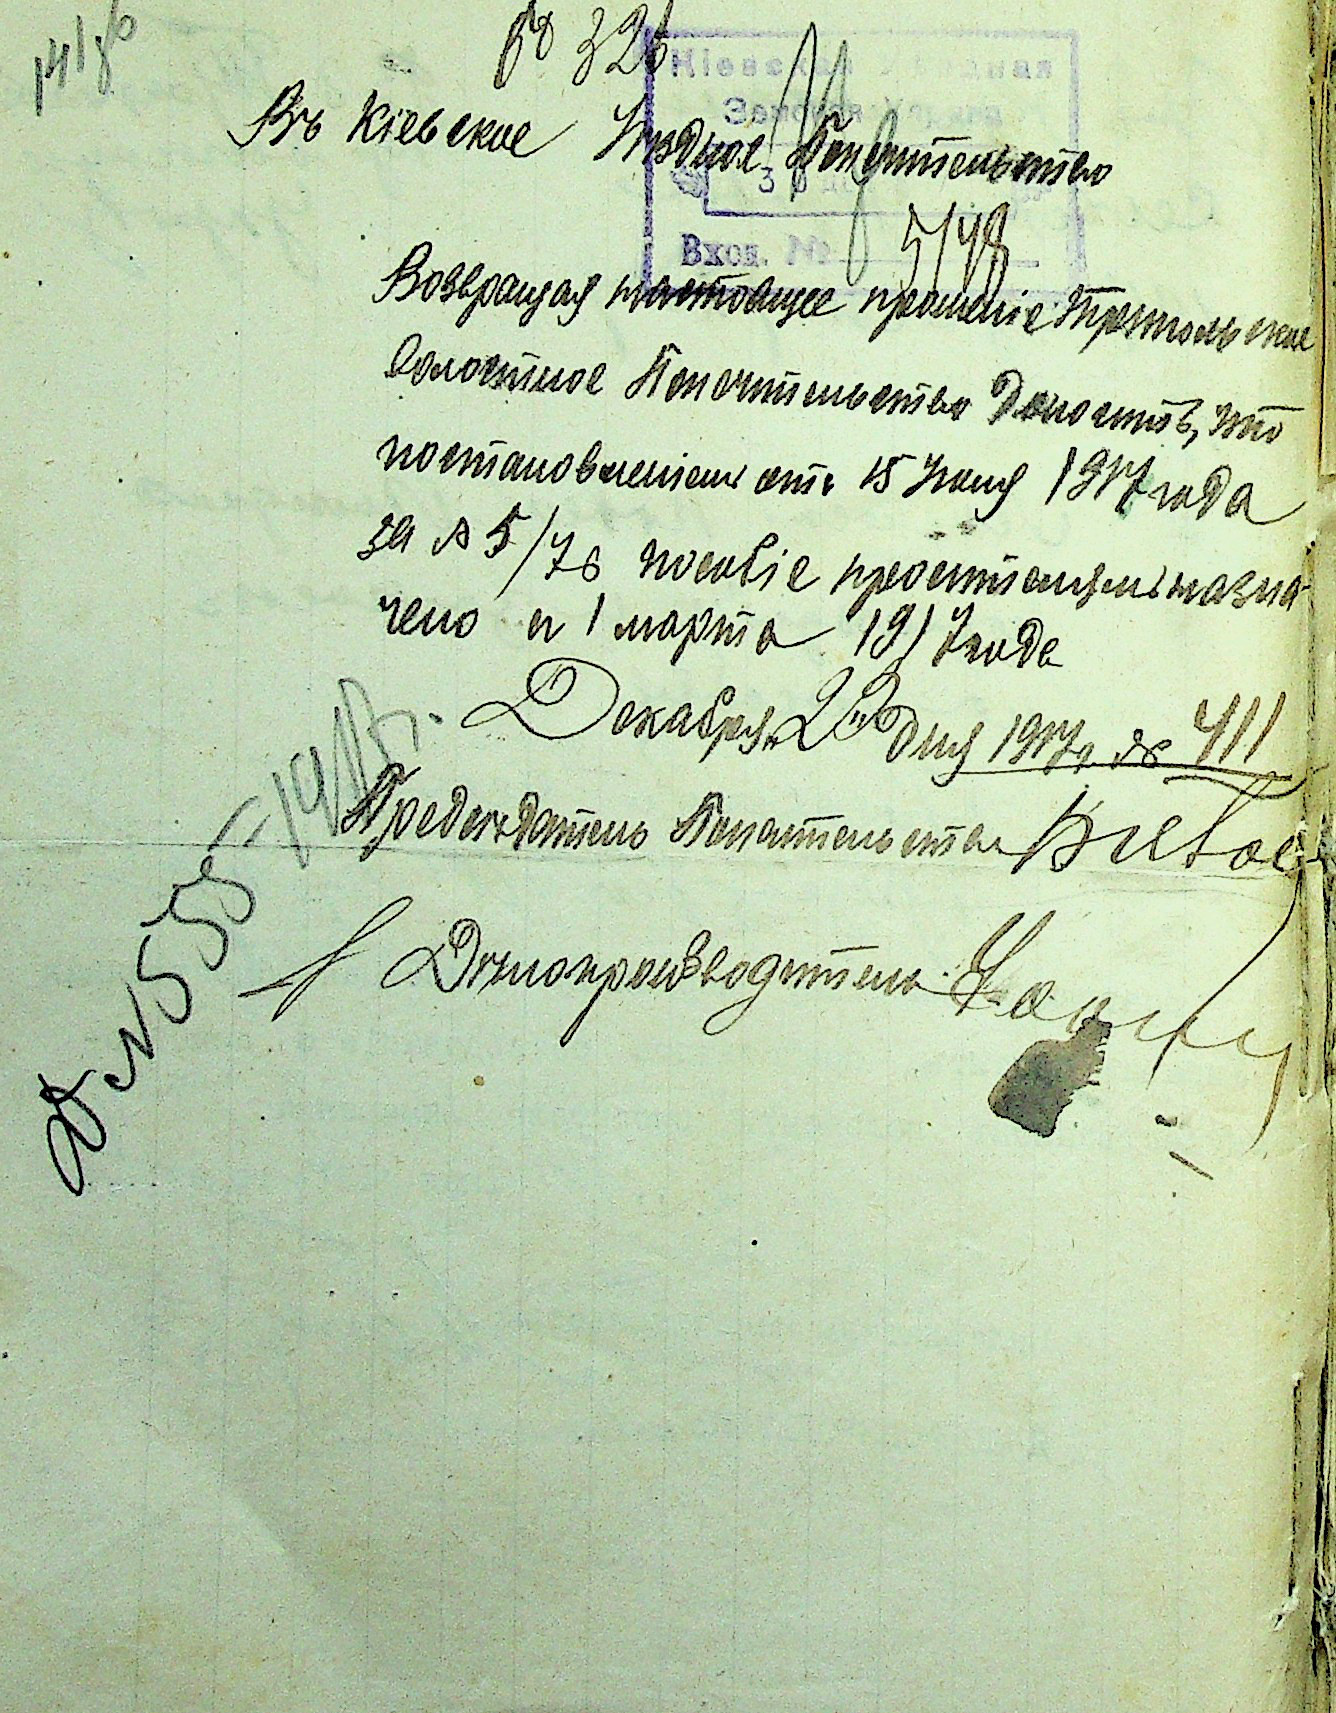 141/86
№ 326
Кіевская Уѣздная
Земская Управа
Въ Кіевское Уѣздное Попечительство
3
5148
Вход. №
Возвращая настоящее прошеніе Трипольское
Волостное Попечительство доноситъ, что
постановленіемъ отъ 15 Іюня 1917 года
за № 5/76 пособіе просительницѣ назна-
чено съ 1 марта 1917 года
Декабря 20 дня 1917 г. № 411
Предсѣдатель Попечительства
Дѣлопроизводитель
№ 555